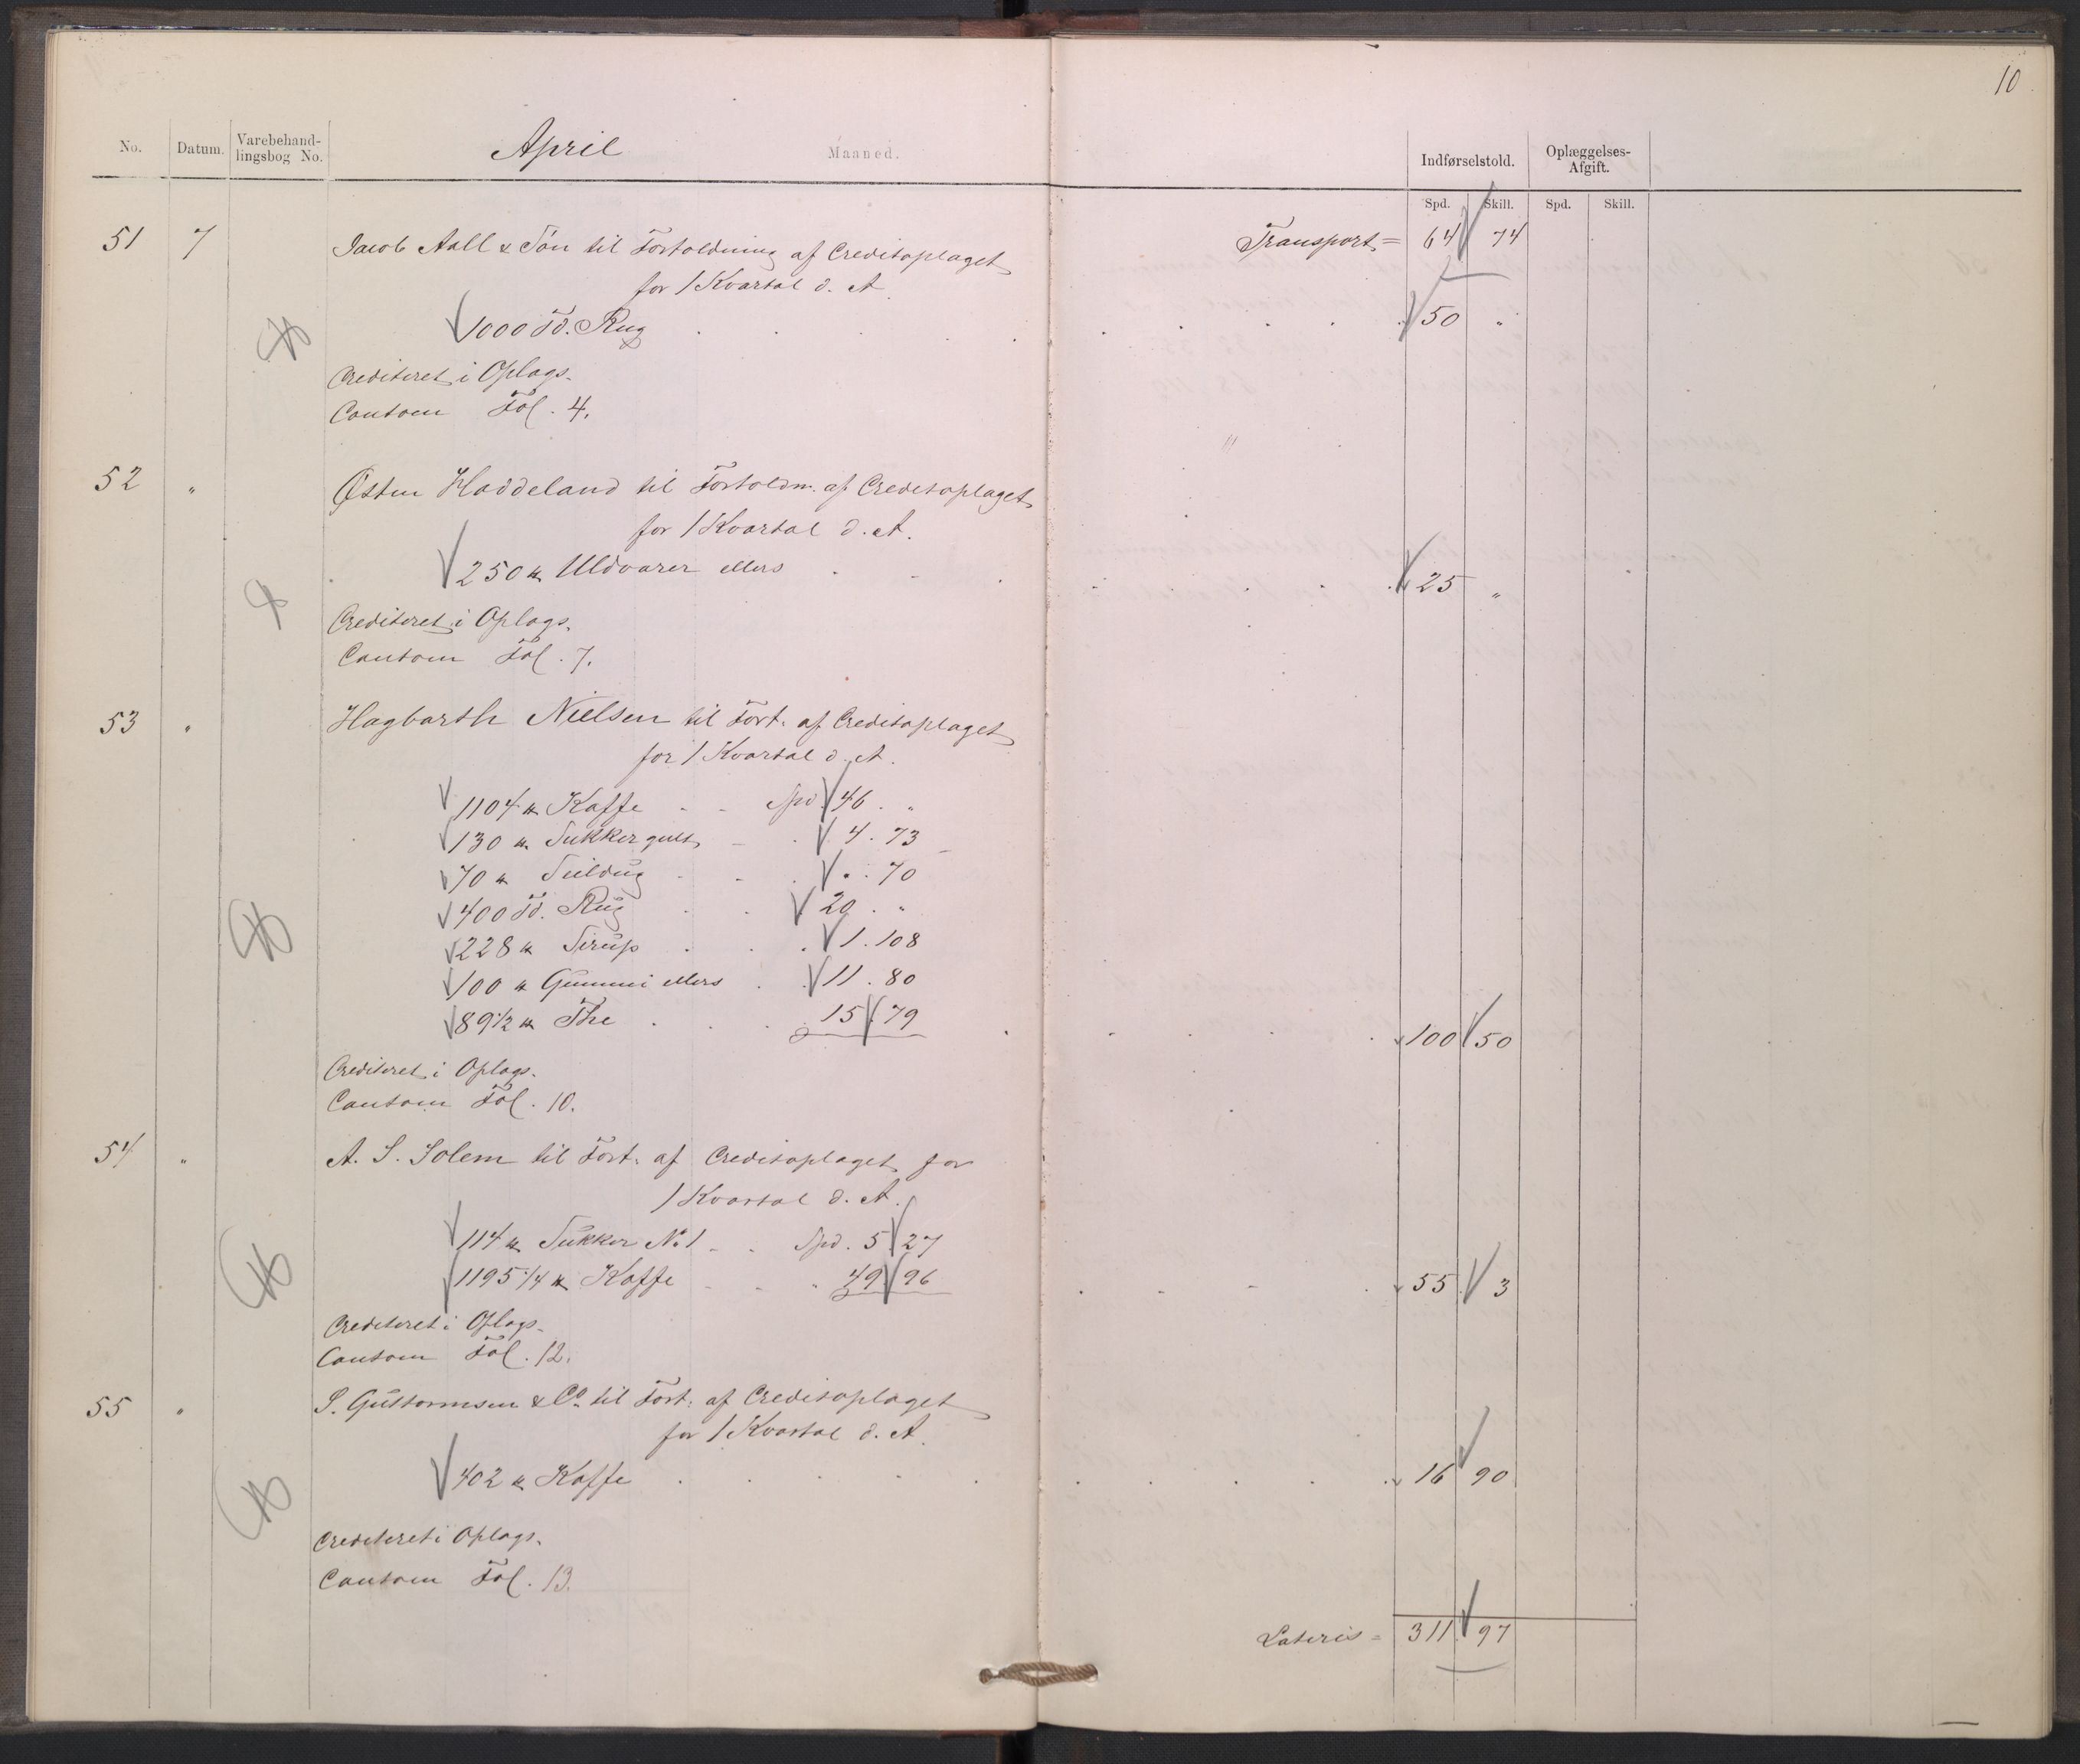 10
No. Datum. Varebehand-lingsbog No. April Maaned. Indførselstold. Oplæggelses-Afgift.
Spd. Skill. Spd. Skill.
Transport = 64 74
51 7 Jacob Aall & Søn til Fortoldning af Creditoplaget
for 1 Kvartal d. A.
1000 Td. Rug 50 "
Crediteret i Oplags-
Contoen Fol. 4.
52 " Østen Haddeland til Fortoldn. af Creditoplaget
for 1 Kvartal d. A.
250 ℔ Uldvarer ellers 25 "
Crediteret i Oplags-
Contoen Fol. 7.
53 " Hagbarth Nielsen til Fort. af Creditoplaget
for 1 Kvartal d. A.
1104 ℔ Kaffe Spd. 46 . "
130 ℔ Sukker gult 4 . 73
70 ℔ Seildug " . 70
400 Td. Rug 20 . "
228 ℔ Sirup 1 . 108
100 ℔ Gummi ellers 11 . 80
89 1/2 ℔ The 15 . 79 100 50
Crediteret i Oplags-
Contoen Fol. 10.
54 " A. S. Solem til Fort. af Creditoplaget for
1 Kvartal d. A.
114 ℔ Sukker No. 1 Spd. 5 27
1195 1/4 ℔ Kaffe " 49 96 55 3
Crediteret i Oplags-
Contoen Fol. 12.
55 " S. Gustormsen & Co. til Fort. af Creditoplaget
for 1 Kvartal d. A.
402 ℔ Kaffe 16 90
Crediteret i Oplags-
Contoen Fol. 13.
Lateris = 311 97